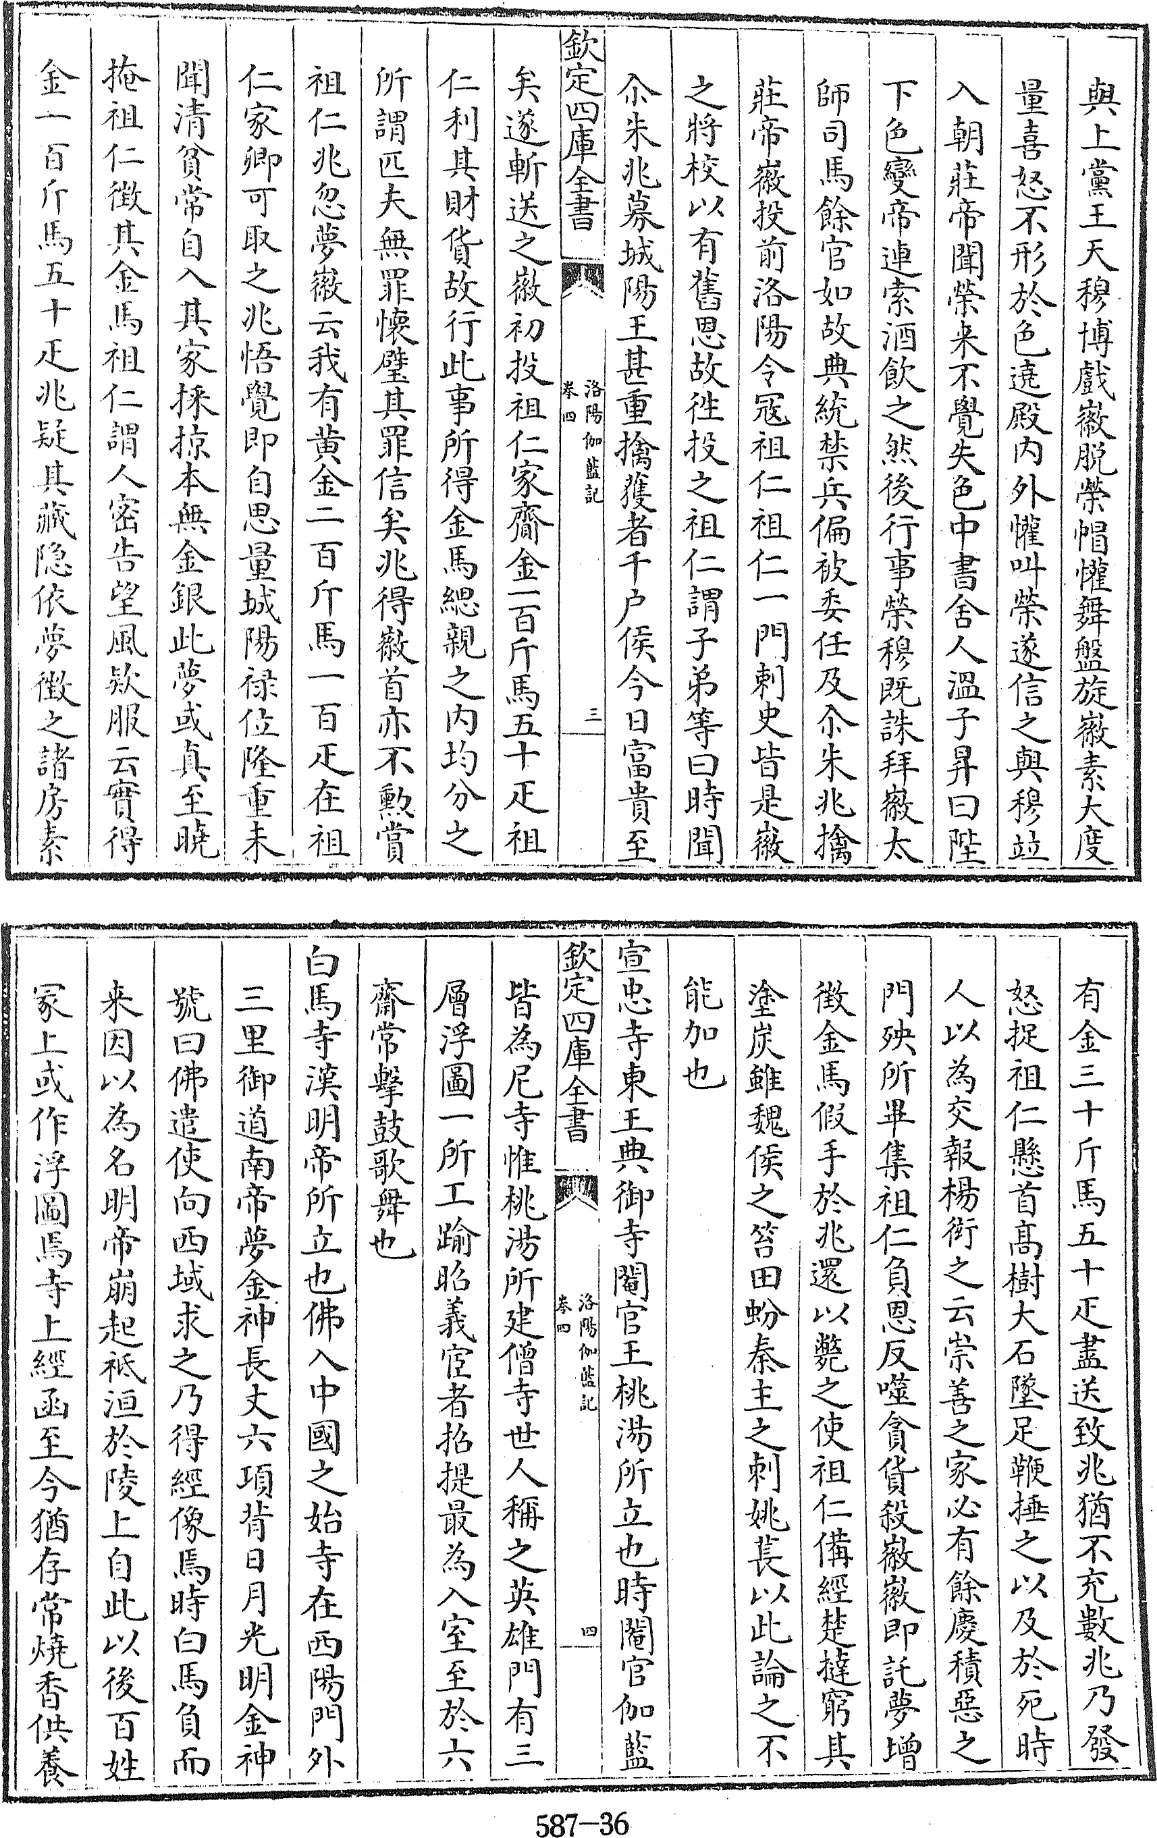 與上黨王天穆博戲徽脱榮帽懽舞盤旋徽素大度
量喜怒不形於色遶殿内外懽叫榮遂信之與穆竝
入朝莊帝聞榮来不覺失色中書舍人温子昇曰陛
下色變帝連索酒飲之然後行事榮穆既誅拜徽太
師司馬餘官如故典統禁兵偏被委任及尒朱兆擒
莊帝徽投前洛陽令寇祖仁祖仁一門刺史皆是徽
之將校以有舊恩故徃投之祖仁謂子弟等曰時聞
尒朱兆募城陽王甚重擒獲者千户侯今日富貴至
欽定四庫全書
洛陽伽藍記
卷四
三
矣遂斬送之徽初投祖仁家齎金一百斤馬五十疋祖
仁利其財貨故行此事所得金馬緦親之内均分之
所謂匹夫無罪懷璧其罪信矣兆得徽首亦不勲賞
祖仁兆忽夢徽云我有黄金二百斤馬一百疋在祖
仁家卿可取之兆悟覺即自思量城陽禄位隆重未
聞清貧常自入其家採掠本無金銀此夢或真至曉
掩祖仁徵其金馬祖仁謂人密告望風欵服云實得
金一百斤馬五十疋兆疑其藏隐依夢徵之諸房素
有金三十斤馬五十疋盡送致兆猶不充數兆乃發
怒捉祖仁懸首髙樹大石墜足鞭捶之以及於死時
人以為交報楊衒之云崇善之家必有餘慶積惡之
門殃所畢集祖仁負恩反噬貪貨殺徽徽即託夢增
徵金馬假手於兆還以斃之使祖仁備經楚撻窮其
塗炭雖魏侯之笞田蚡秦主之刺姚萇以此論之不
能加也
宣忠寺東王典御寺閹官王桃湯所立也時閹官伽藍
欽定四庫全書
洛陽伽藍記
卷四
四
皆為尼寺惟桃湯所建僧寺世人稱之英雄門有三
層浮圖一所工踰昭義宦者招提最為入室至於六
齋常擊鼓歌舞也
白馬寺漢明帝所立也佛入中國之始寺在西陽門外
三里御道南帝夢金神長丈六項背日月光明金神
號曰佛遣使向西域求之乃得經像焉時白馬負而
来因以為名明帝崩起祗洹於陵上自此以後百姓
冢上或作浮圖焉寺上經函至今猶存常燒香供養
587-36